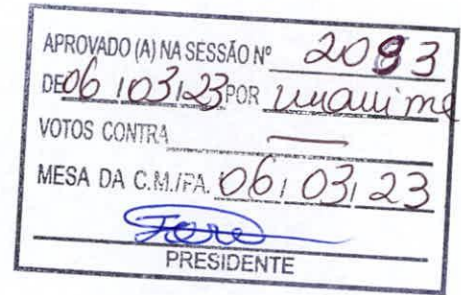 APROVADO (A) NA SESSÃO Nº 2093
DE 06 / 03 / 23 POR unanime
VOTOS CONTRA —
MESA DA C.M./PA. 06 / 03 / 23
PRESIDENTE